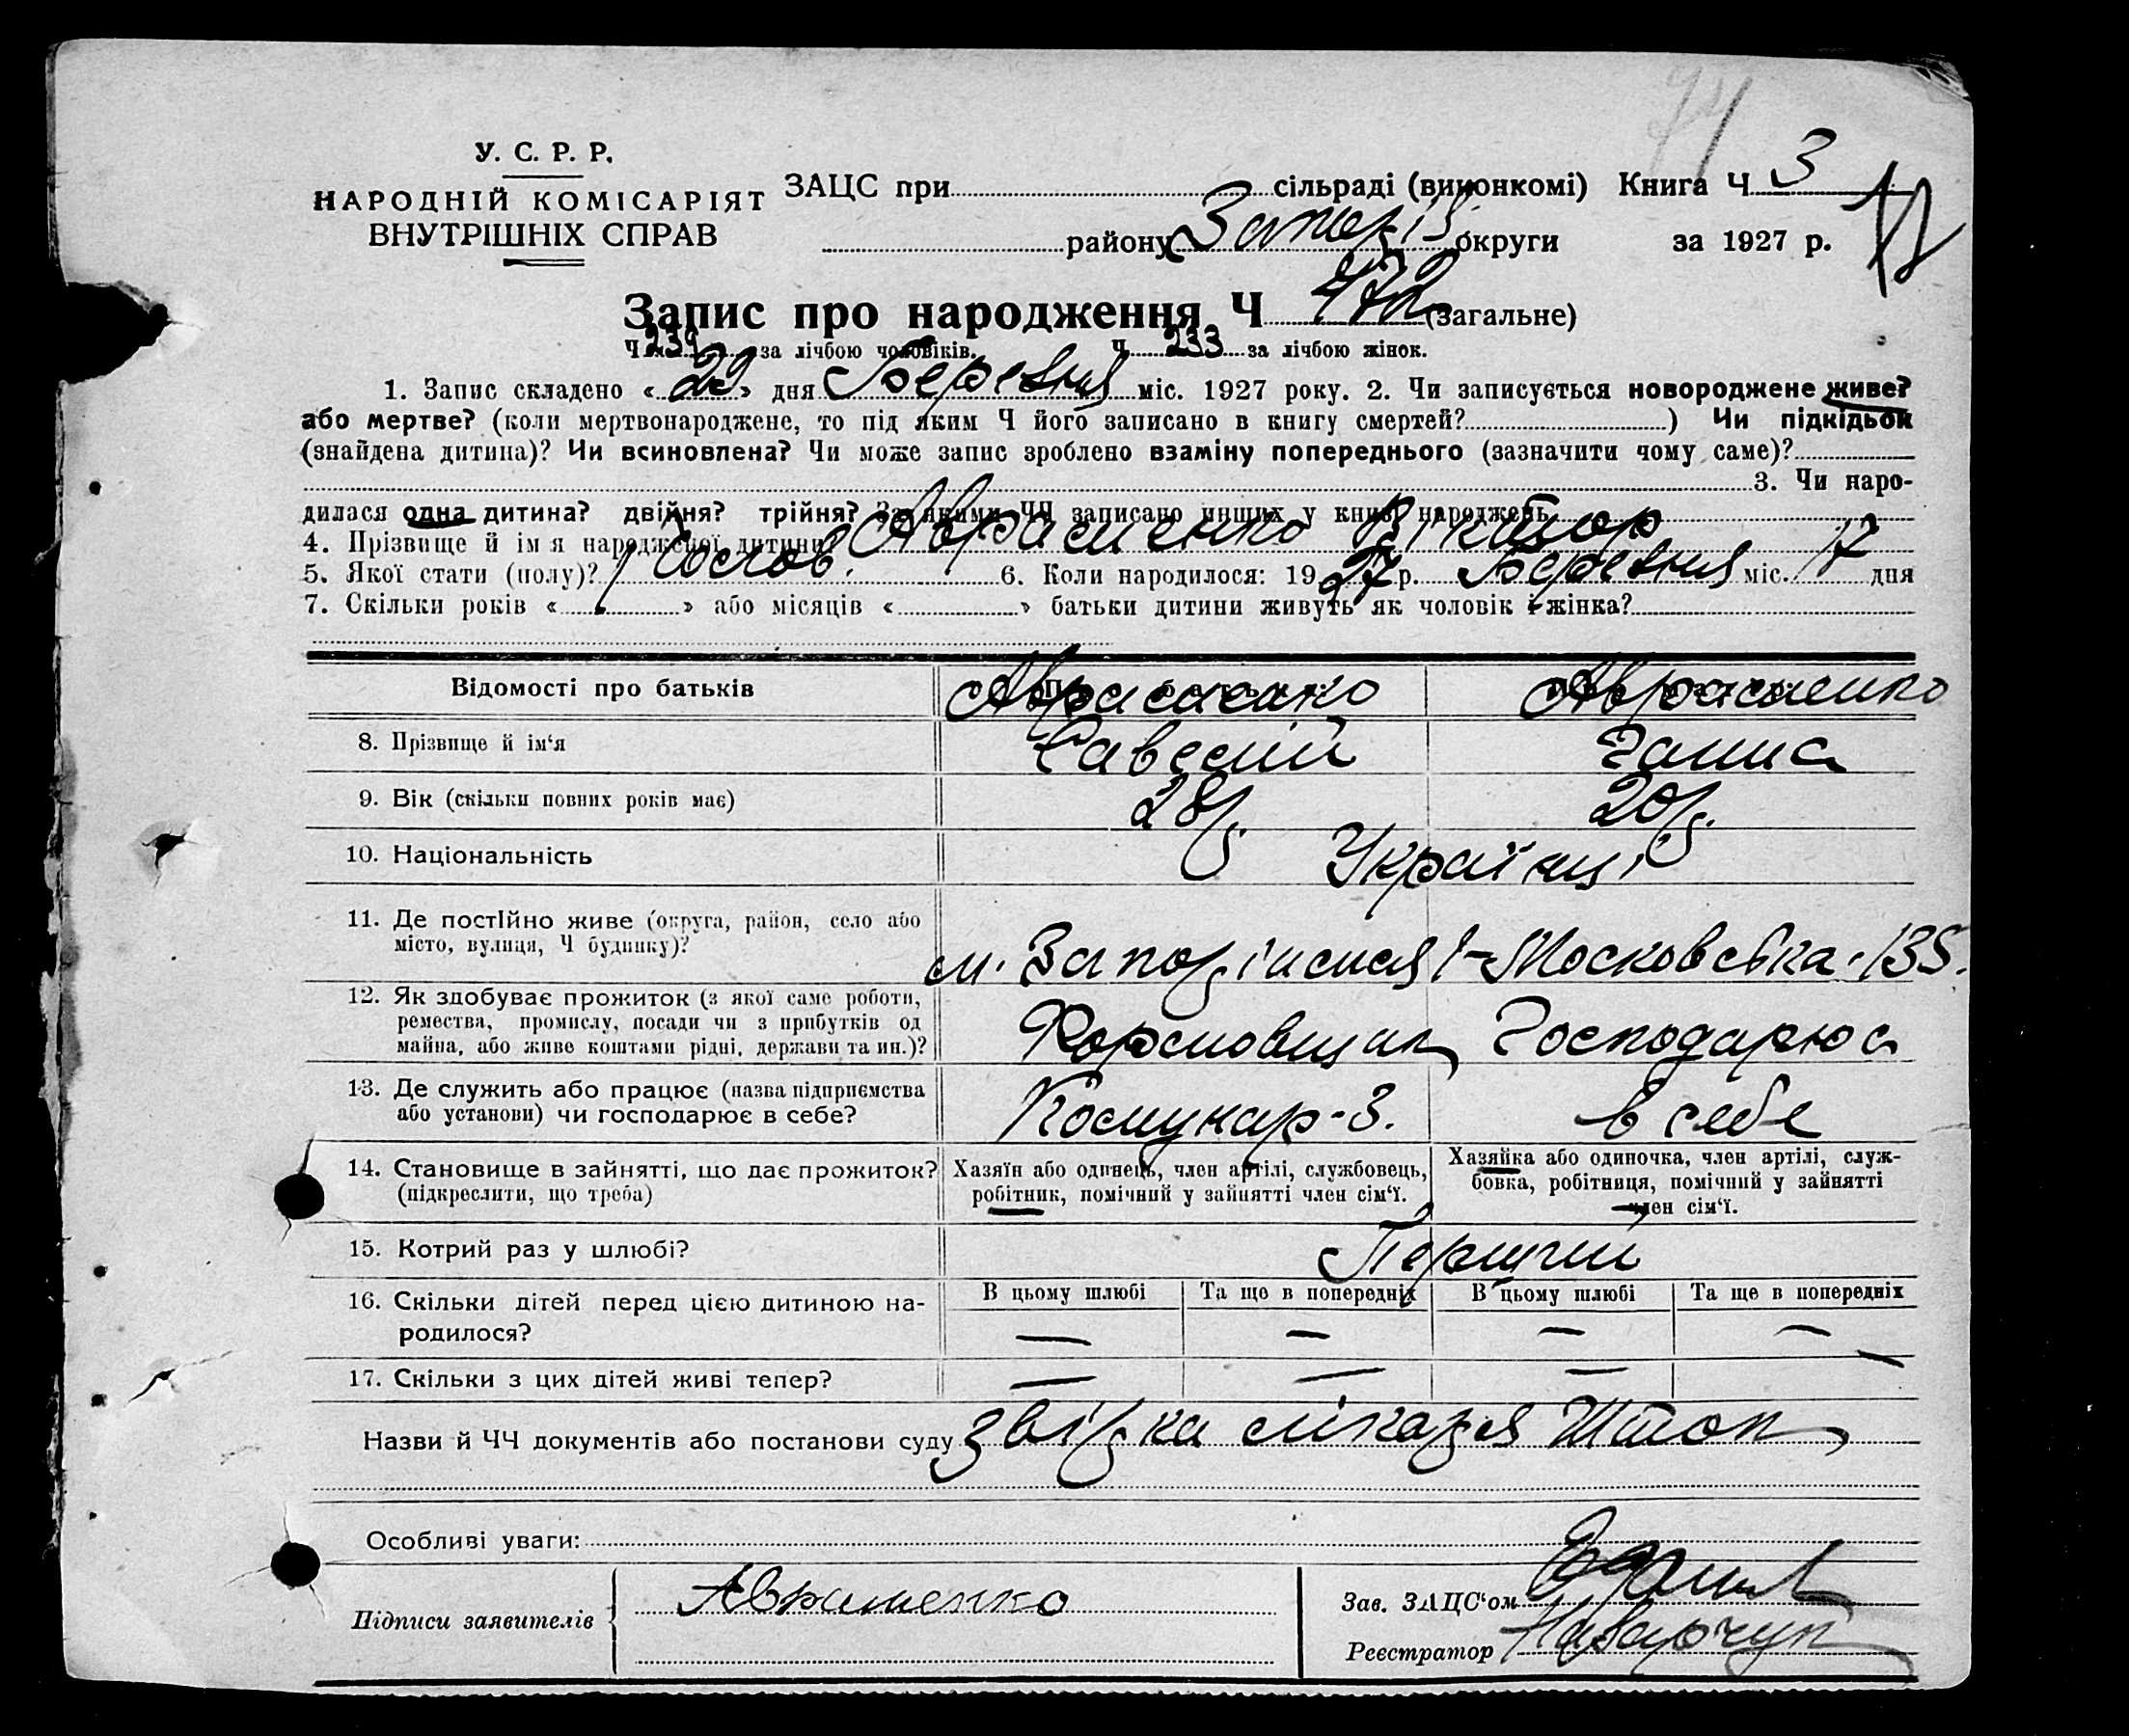 74
У. С. Р. Р.
НАРОДНІЙ КОМІСАРІЯТ
ВНУТРІШНІХ СПРАВ
ЗАЦС при сільраді (виконкомі) Книга Ч 3
району Запоріз. округи за 1927 р.
Запис про народження Ч 472 (загальне)
Ч 239 за лічбою чоловіків. Ч 233 за лічбою жінок.
1. Запис складено « 29 » дня Березня міс. 1927 року. 2. Чи записується новороджене живе?
або мертве? (коли мертвонароджене, то під яким Ч його записано в книгу смертей? ) Чи підкідьок
(знайдена дитина)? Чи всиновлена? Чи може запис зроблено взаміну попереднього (зазначити чому саме)?
3. Чи наро-
дилася одна дитина? двійня? трійня? За якими ЧЧ записано инших у книзі народжень
4. Прізвище й ім я народженої дитини Авраменко Віктор
5. Якої стати (полу)? Чолов. 6. Коли народилося: 1927 р. Березня міс. 17 дня
7. Скільки років « » або місяців « » батьки дитини живуть як чоловік і жінка?
Відомості про батьків Авраменко Авраменко
8. Прізвище й ім‘я Савелій Ганна
9. Вік (скільки повних років має) 28 р. 20 р.
10. Національність Українці
11. Де постІйно живе (округа, район, село або
місто, вулиця, Ч будинку)?
м. Запоріжжя 1-Московська. 135.
12. Як здобуває прожиток (з якої саме роботи,
ремества, промислу, посади чи з прибутків од
майна, або живе коштами рідні, держави та ин.)?
Формовщик Господарює
13. Де служить або працює (назва підприємства
або установи) чи господарює в себе?
Комунар-З. в себе
14. Становище в зайнятті, що дає прожиток?
(підкреслити, що треба)
Хазяїн або одинець, член артілі, службовець,
робітник, помічний у зайнятті член сім‘ї.
Хазяйка або одиночка, член артілі, служ-
бовка, робітниця, помічний у зайнятті
член сім‘ї.
15. Котрий раз у шлюбі? Перший
16. Скільки дітей перед цією дитиною на-
родилося?
В цьому шлюбі Та що в попередніх В цьому шлюбі Та ще в попередніх
— — — —
17. Скільки з цих дітей живі тепер? — — — —
Назви й ЧЧ документів або постанови суду звідка лікаря
Особливі уваги:
Підписи заявителів Авраменко
Зав. ЗАЦС‘ом
Реєстратор